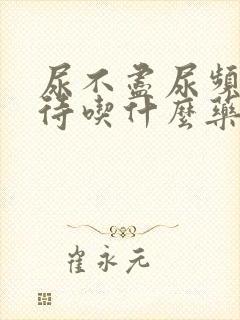 尿不盡尿頻
待喫什麼藥
崔永元